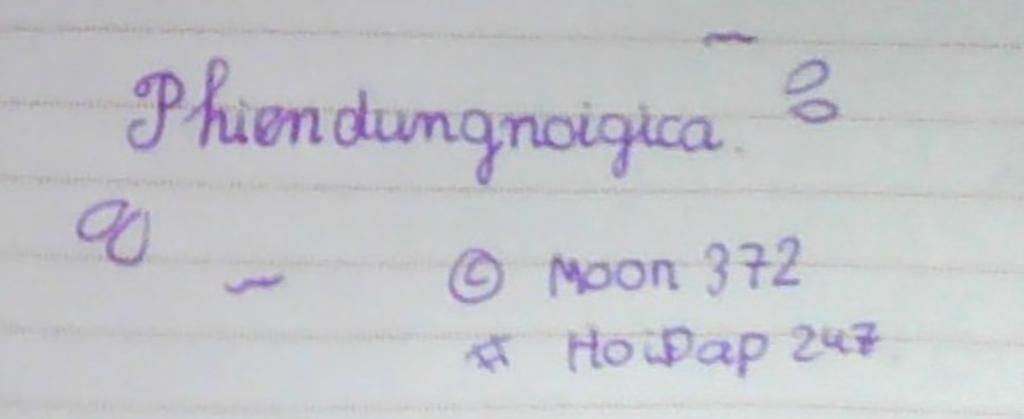 Phiendungnoigica.
© Moon 372
# HoiDap 247